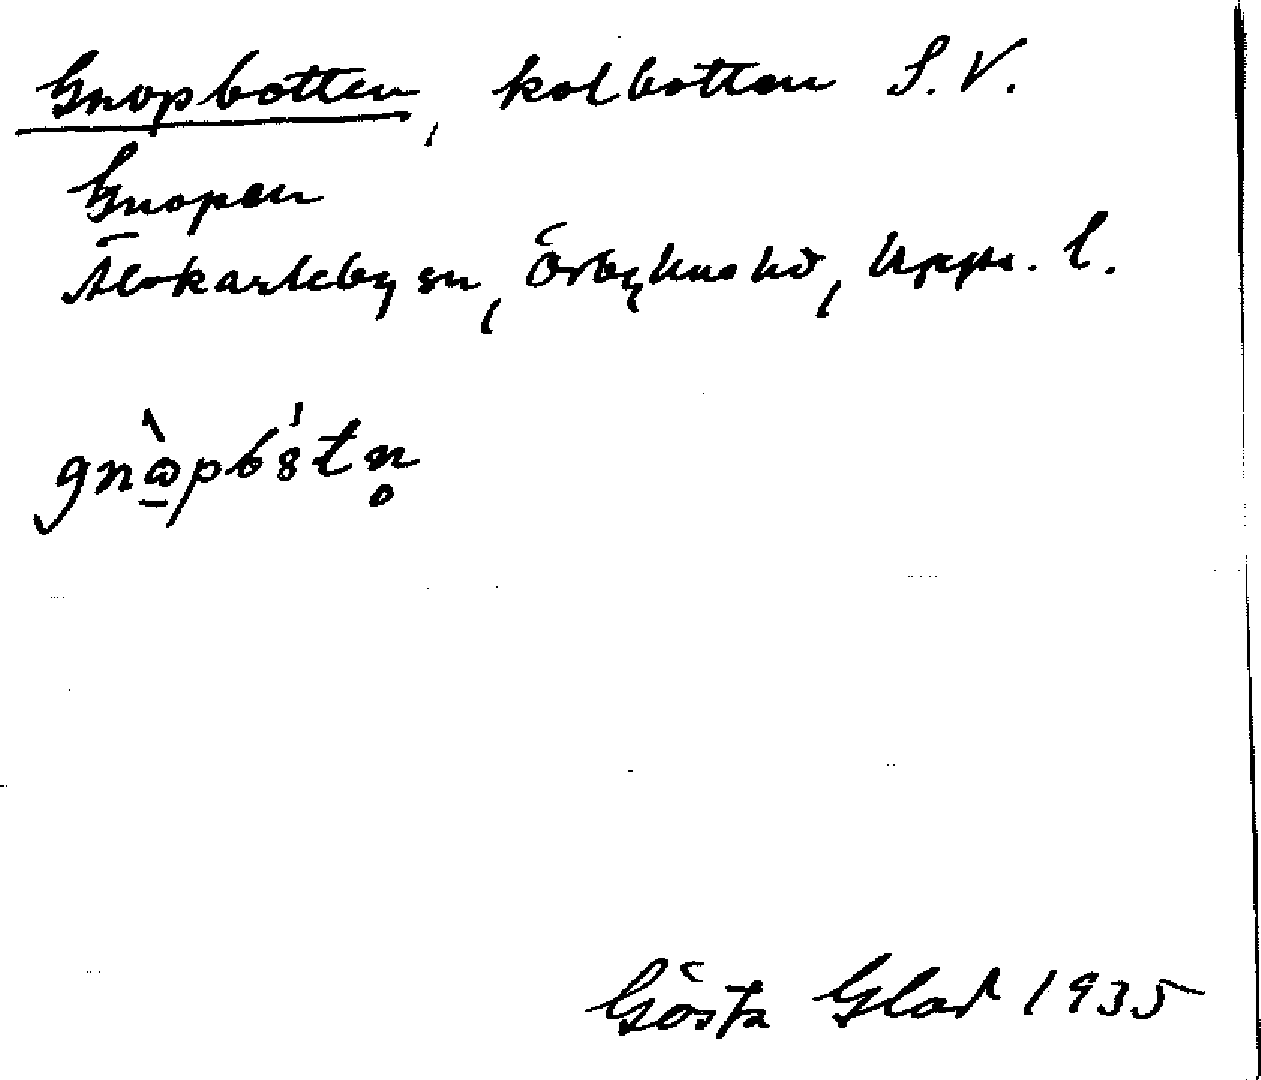 Gnopbotten, kolbotten S.V.
Gnopen
Älvkarleby sn, Örbyhus hd, Upps. l.
gnὼ̱pbȣ́tn̥
Gösta Glad 1935